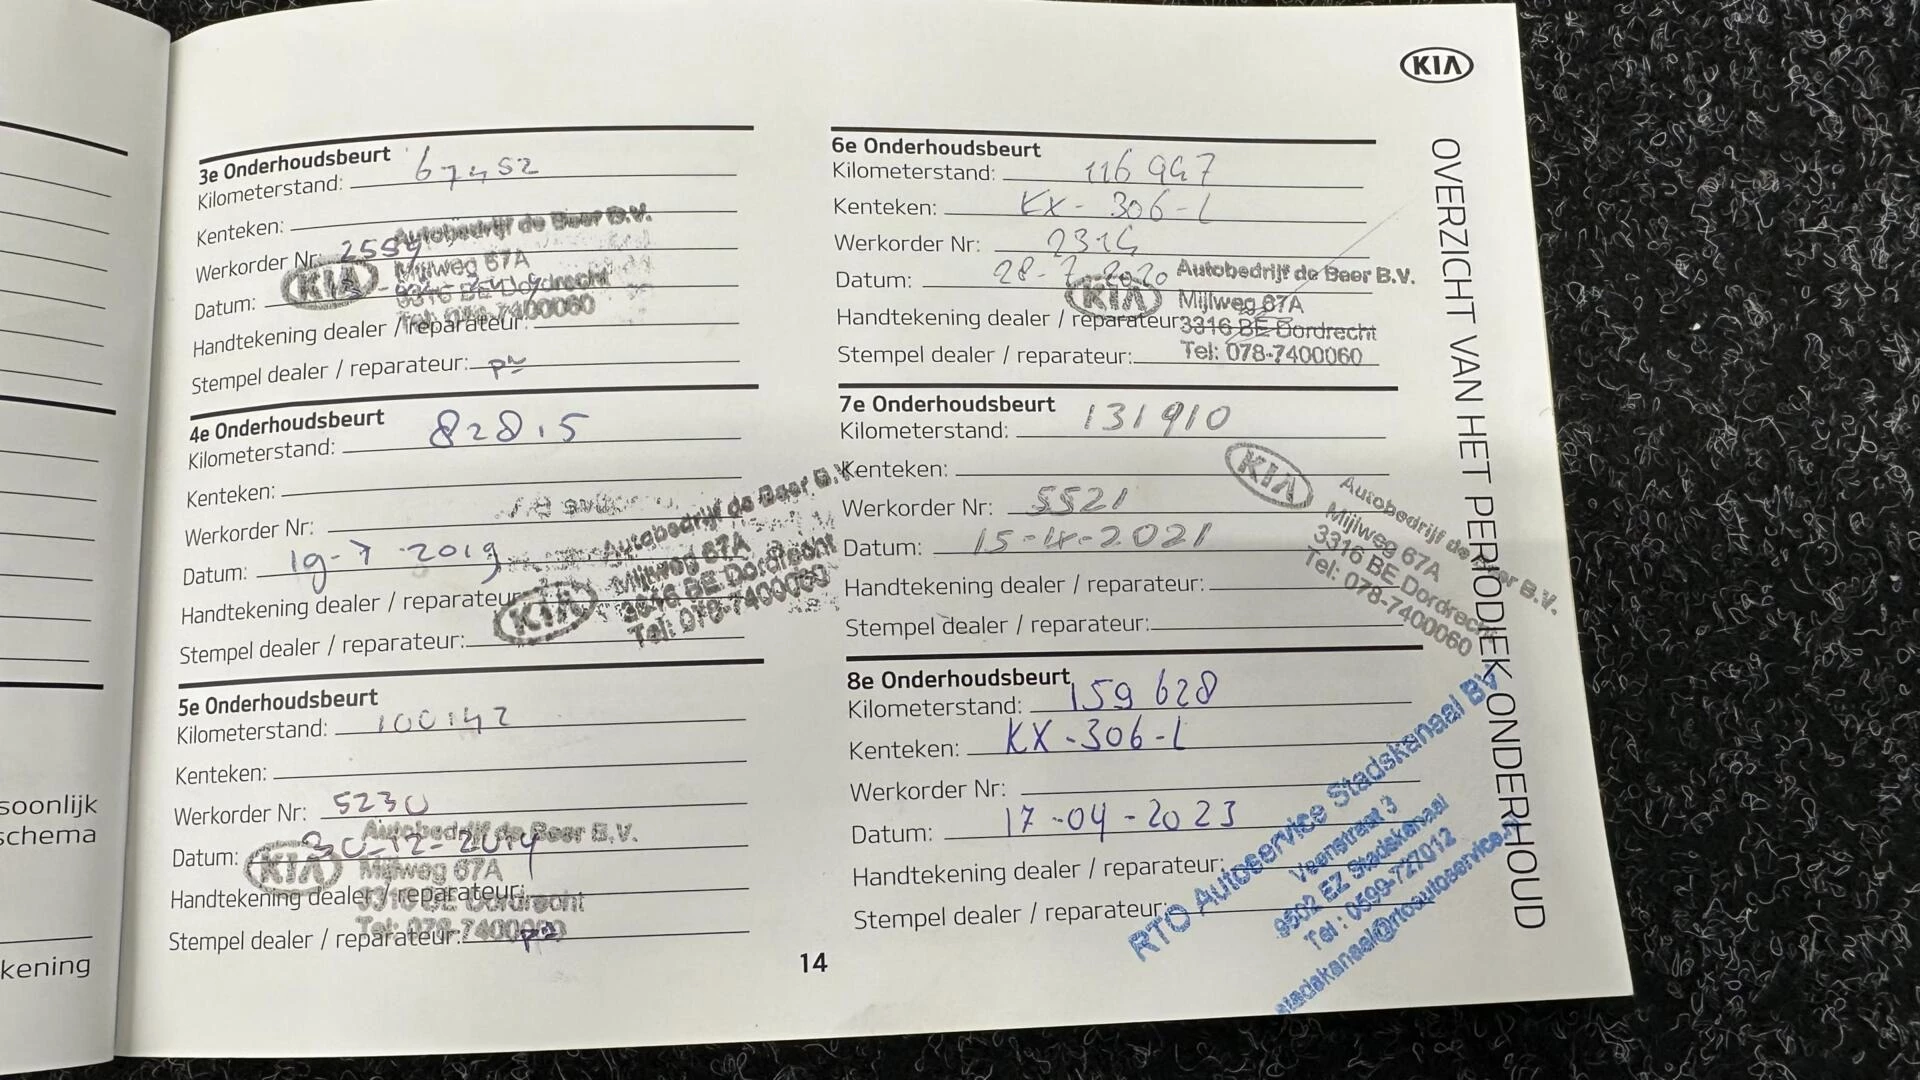 soonlijk
schema
kening
3e Onderhoudsbeurt
Kilometerstand: 67452
Kenteken:
Autobedrijf de Beer B.V.
Werkorder Nr:
KIA Mijlweg 67A
3316 BE Dordrecht
Datum:
Tel: 078-7400060
Handtekening dealer / reparateur:
Stempel dealer / reparateur:
4e Onderhoudsbeurt
Kilometerstand: 82815
Kenteken:
Werkorder Nr:
Datum: 19-7-2019
Autobedrijf de Beer B.V.
KIA Mijlweg 67A
3316 BE Dordrecht
Tel: 078-7400060
Handtekening dealer / reparateur
Stempel dealer / reparateur:
5e Onderhoudsbeurt
Kilometerstand: 100142
Kenteken:
Werkorder Nr: 5230
Autobedrijf de Beer B.V.
Datum: 30-12-2019
KIA Mijlweg 67A
3316 BE Dordrecht
Handtekening dealer / reparateur:
Tel: 078-7400060
Stempel dealer / reparateur:
14
6e Onderhoudsbeurt
Kilometerstand: 116947
Kenteken: KX-306-L
Werkorder Nr: 2314
Datum: 28-7-2020
Autobedrijf de Beer B.V.
KIA Mijlweg 67A
3316 BE Dordrecht
Tel: 078-7400060
Handtekening dealer / reparateur
Stempel dealer / reparateur:
7e Onderhoudsbeurt
Kilometerstand: 131910
Kenteken:
Werkorder Nr: 5521
Datum: 15-4-2021
KIA Autobedrijf de Beer B.V.
Mijlweg 67A
3316 BE Dordrecht
Tel: 078-7400060
Handtekening dealer / reparateur:
Stempel dealer / reparateur:
8e Onderhoudsbeurt
Kilometerstand: 159 628
Kenteken: KX-306-L
Werkorder Nr:
Datum: 17-04-2023
Handtekening dealer / reparateur:
Stempel dealer / reparateur:
RTO Autoservice Stadskanaal BV
Veenstraat 3
9502 EZ Stadskanaal
Tel : 0599-727012
stadskanaal@rtoautoservice.nl
KIA
OVERZICHT VAN HET PERIODIEK ONDERHOUD